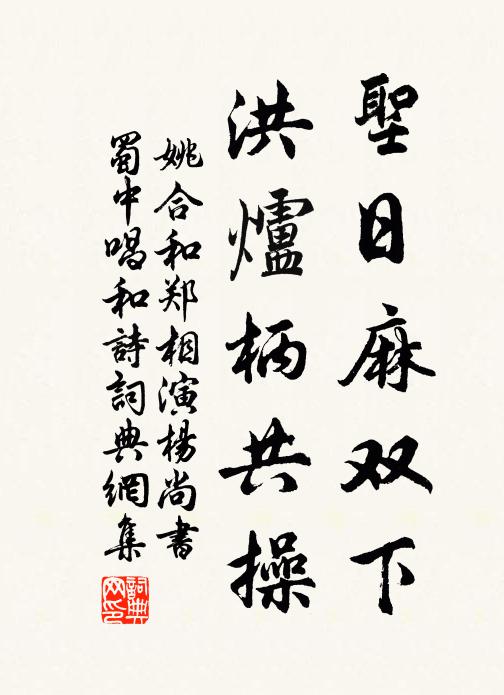 聖日麻双下
洪爐柄共操
姚合和郑相演楊尚書
蜀中唱和詩詞典網集
詞典网印